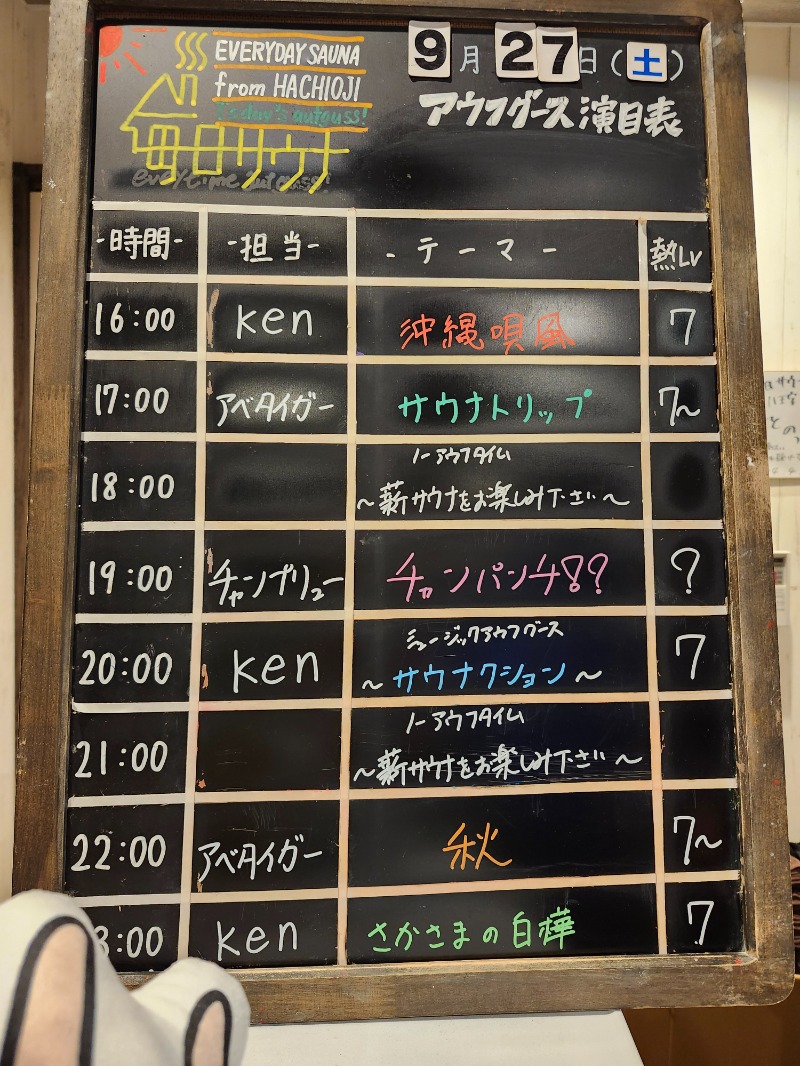 EVERYDAY SAUNA
from HACHIOJI
Today's aufguss!
毎日サウナ
everytime aufguss!
9月27日(土)
アウフグース演目表
-時間- -担当- -テーマ- 熱Lv
16:00 ken 沖縄唄風 7
17:00 アベタイガー サウナトリップ 7~
18:00 ノーアウフタイム
~薪サウナをお楽しみ下さい~
19:00 チャンブリュー チャンパンチ8?? ?
20:00 ken ミュージックアウフグース 7
~サウナクション~
21:00 ノーアウフタイム
~薪サウナをお楽しみ下さい~
22:00 アベタイガー 秋 7~
3:00 ken さかさまの白樺 7